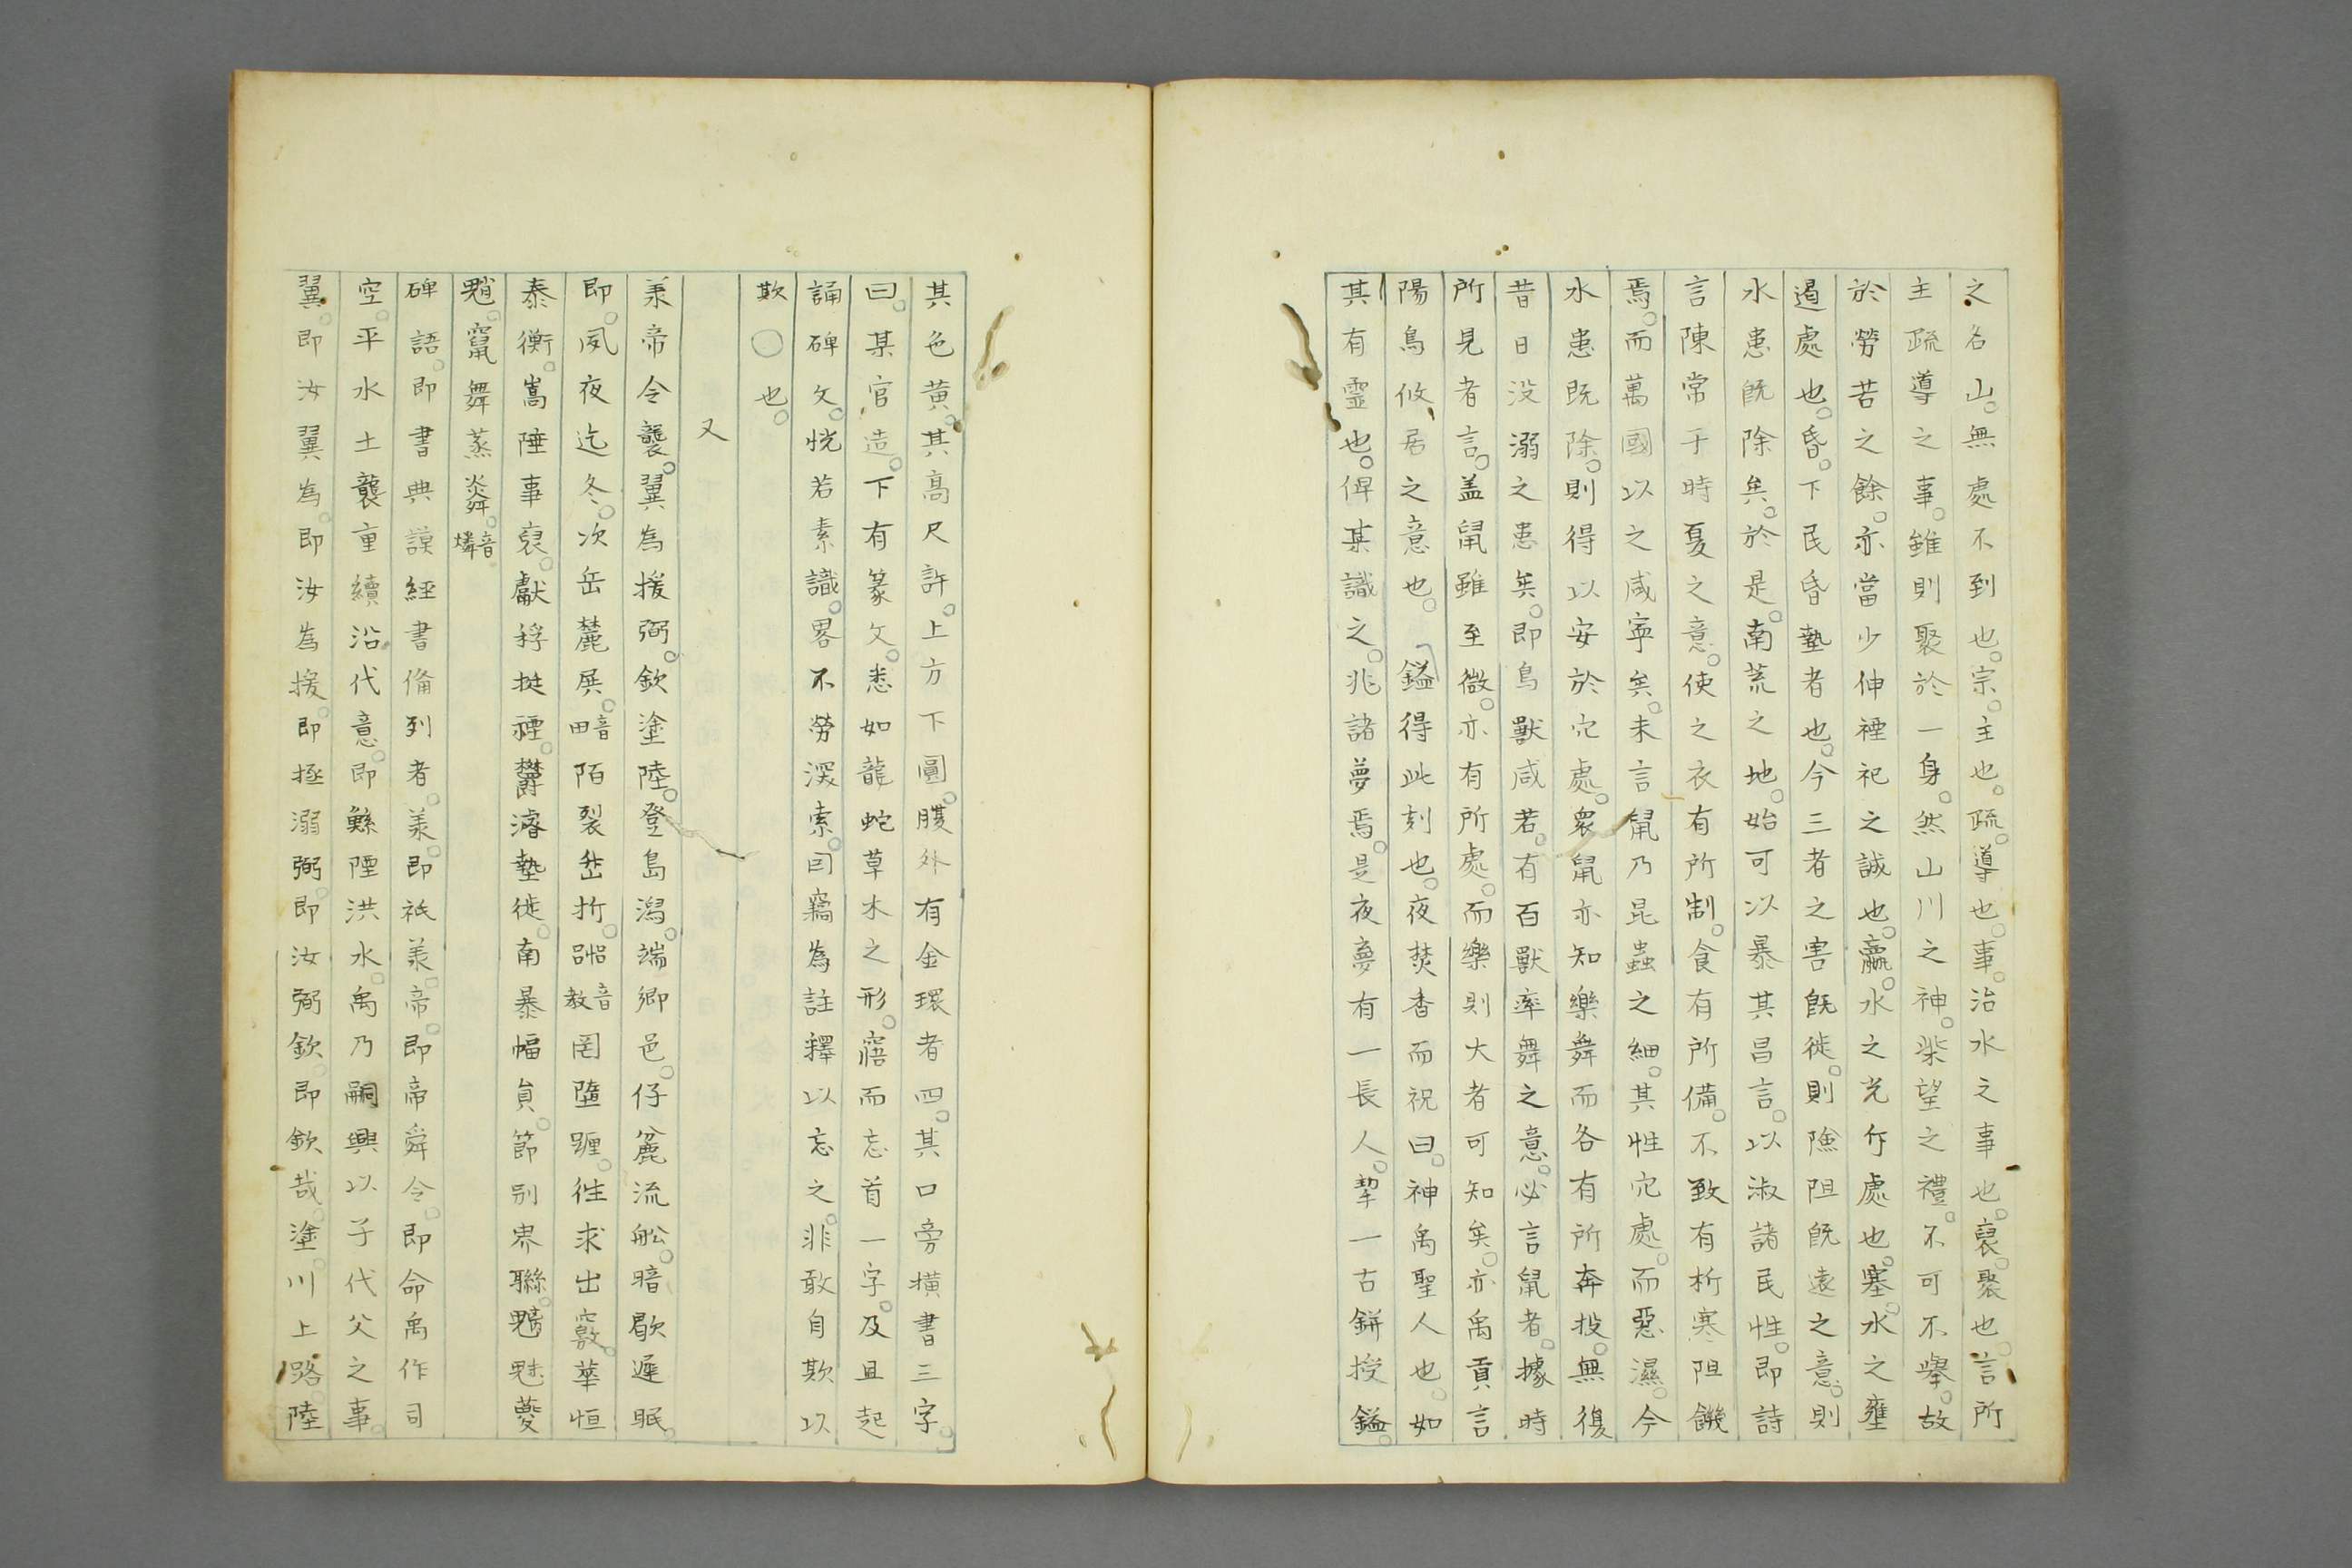 之名山。無處不到也。宗。主也。疏。導也。事。治水之事也。裒。聚也。言所
主疏導之事。雖則聚於一身。然山川之神。柴望之禮。不可不擧。故
於勞苦之餘。亦當少伸禋祀之誠也。贏。水之光作處也。塞。水之壅
遏處也。昏。下民昏墊者也。今三者之害旣徙。則險阻旣遠之意。則
水患旣除矣。於是。南荒之地。始可以暴其昌言。以淑諸民性。卽詩
言陳常于時夏之意。使之衣有所制。食有所備。不致有析寒阻饑
焉。而萬國以之咸寧矣。未言鼠乃昆蟲之細。其性穴處。而惡濕。今
水患既除。則得以安於穴處。衆鼠亦知樂舞而各有所奔投。無復
昔日没溺之患矣。即鳥獸咸若。有百獸率舞之意。必言鼠者。據時
所見者言。盖鼠雖至微。亦有所處。而樂則大者可知矣。亦禹貢言
陽鳥攸居之意也。鎰得此刻也。夜焚香而祝曰。神禹聖人也。如
其有靈也。俾某識之。兆諸夢焉。是夜夢有一長人。挈一古鉼授鎰。
其色黄。其高尺許。上方下圓。腰外有金環者四。其口旁横書三字。
曰。某官造。下有篆文。悉如龍蛇草木之形。寤而忘首一字。及且起
誦碑文。恍若素識。畧不勞深索。因竊為註釋以忘之。非敢自欺以
欺○也。
又
羕帝令襲。翼為援弼。欽塗陸。登島潟。端鄉邑。仔麄流舩。暗歇遲眠。
即。夙夜迄冬。次岳麓展。音田陌裂岔折。音教罔墮躔。徃求出竅。華恒
泰衡。嵩陲事裒。獻稃挺禋。欝濬墊徙。南暴幅員。節别界聯。魈魅夔
魈。竄舞蒸。音燐
碑語。即書典謨經書備列者。羕。即祇羕。帝。即帝舜令。即命禹作司
空。平水土襲重續沿代意。即鯀陻洪水。禹乃嗣興以子代父之事。
翼。即汝翼為。即汝為援。即拯溺弼。即汝弼欽。即欽哉。塗。川上路。陸